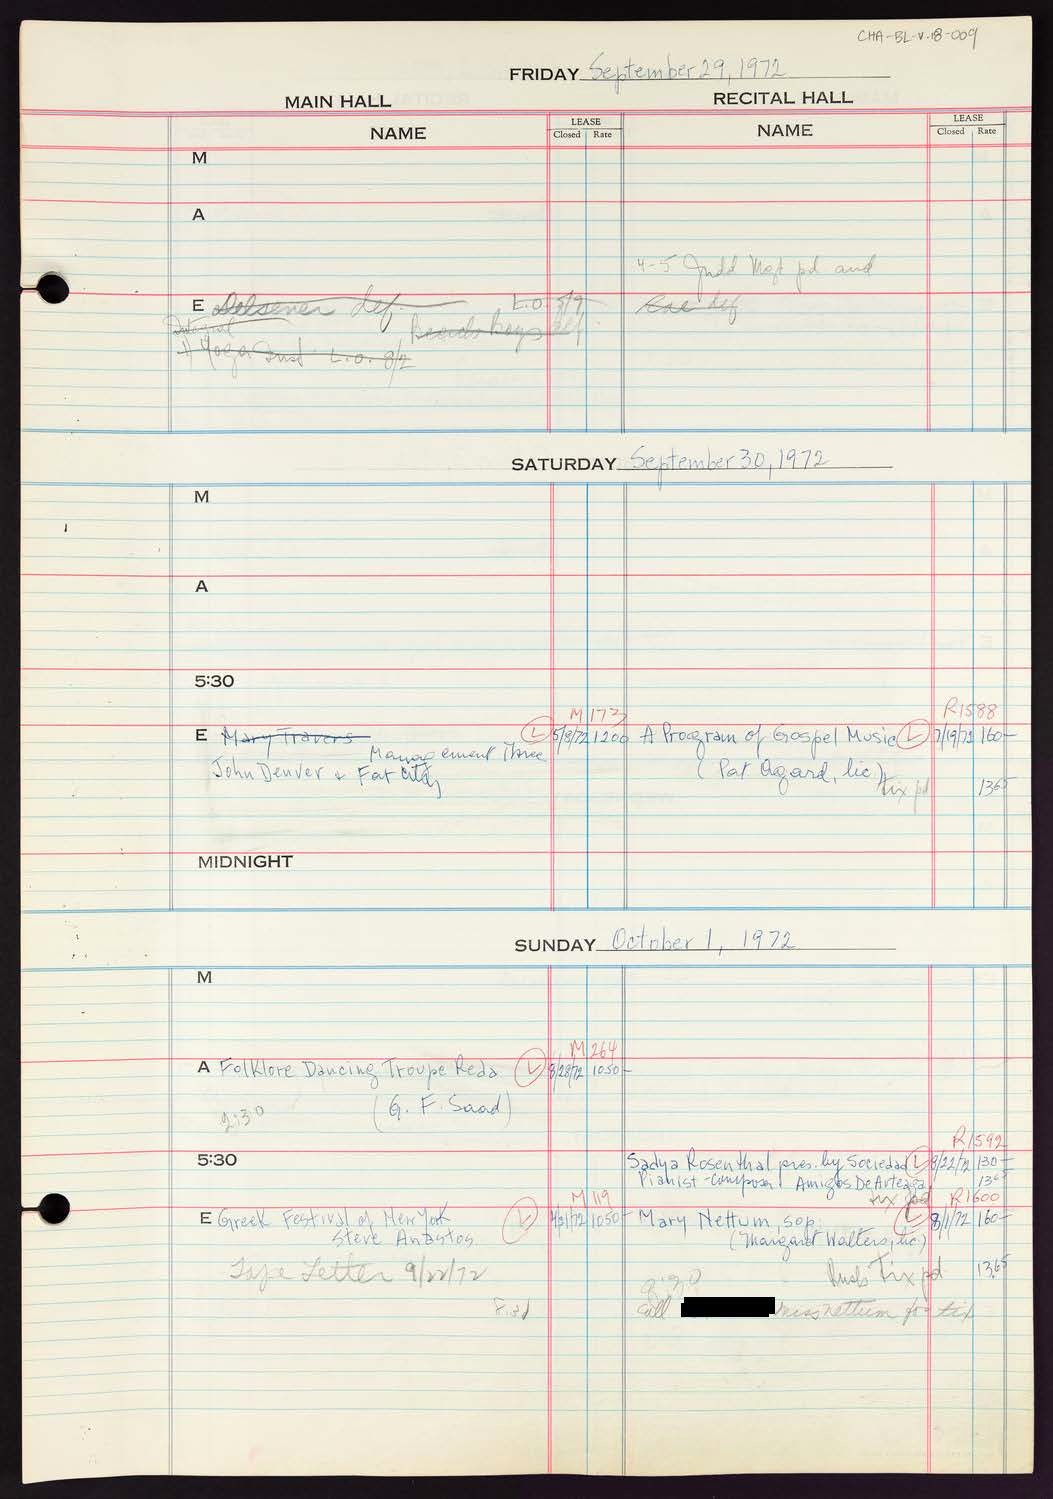 CHA-BL-v.18-009
FRIDAY September 29, 1972
MAIN HALL
RECITAL HALL
NAME
LEASE
Closed Rate
NAME
LEASE
Closed Rate
M
A
4-5 Judd Mgt pd and
E Delsener def. L.O. 5/9
Rae def
Integral Beach Boys def.
Yoga Inst L.O. 8/2
SATURDAY September 30, 1972
M
A
5:30
M 173
R1588
E Mary Travers L 5/8/72 1200 A Program of Gospel Music L 7/19/72 160-
Management Three
John Denver & Fat City
(Pat Agard, lic)
tix pd 1365
MIDNIGHT
SUNDAY October 1, 1972
M
M 264
A Folklore Dancing Troupe Reda L 8/28/72 1050-
(G. F. Saad)
2:30
R1592
5:30
Sadya Rosenthal pres. by Sociedad L 8/22/72 130-
Pianist-Composer Amigos De Arteaga 1365
M 119
tix pd R1600
E Greek Festival of New York L 4/21/72 1050- Mary Nettum, sop. L 8/1/72 160-
Steve Anastos
(Margaret Walters, lic)
Tape Letter 9/22/72
Tix pd 1365
8:30
Call Miss Nettum for tix